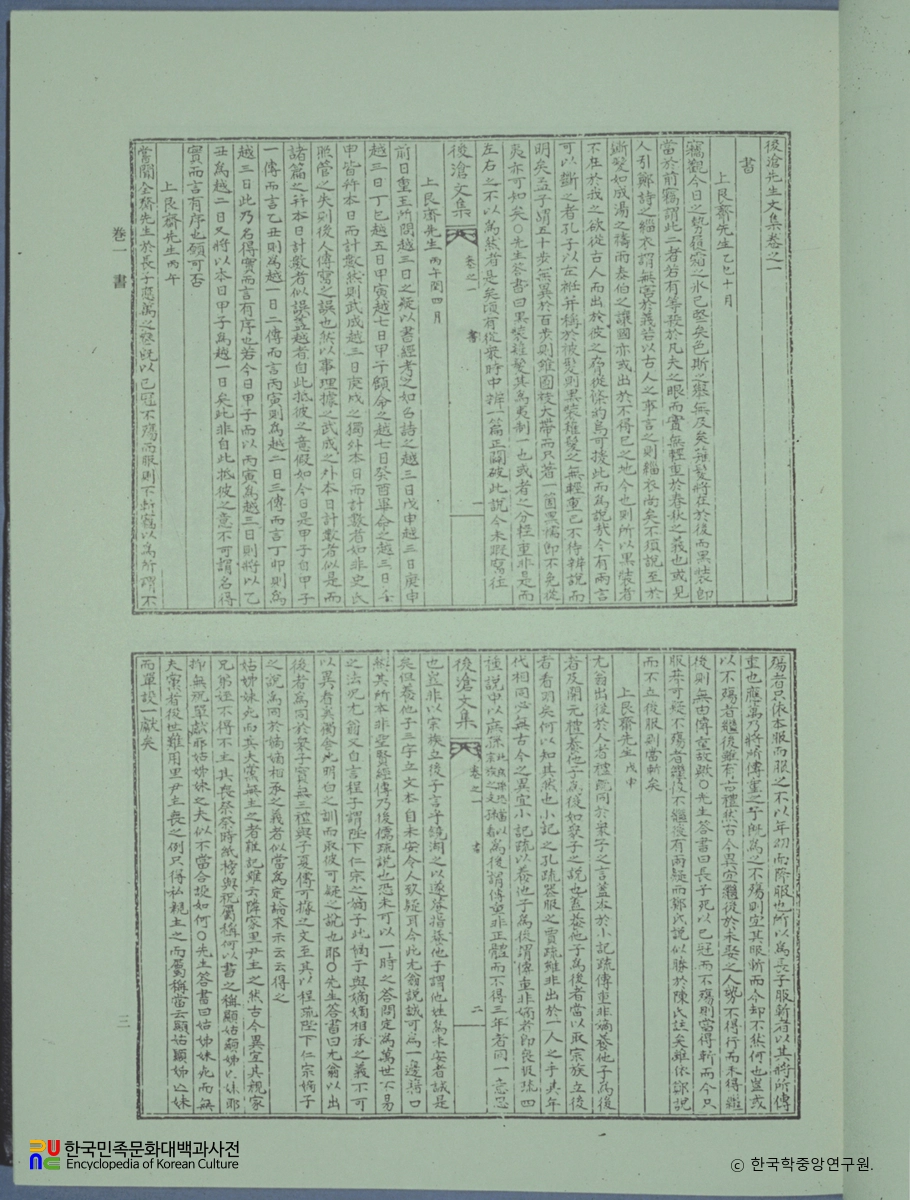 後滄先生文集卷之一
書
上艮齋先生 乙巳十月
竊觀今日之勢履霜之氷已堅矣色斯之擧無及矣薙髮將在於後而黑裝卽
當於前竊謂此二者若有等殺於凡夫之眼而實無輕重於春秋之義也或見
人引鄭詩之緇衣謂無害於義若以古人之事言之則緇衣尙矣不須說至於
斷髮如成湯之禱而泰伯之讓國亦或出於不得已之地今也則所以黑裝者
不在於我之欲從古人而出於彼之脅從條約烏可援此而爲說哉今有兩言
可以斷之者孔子以左袵幷稱於被髮則黑裝薙髮之無輕重已不待辨說而
明矣孟子謂五十步無異於百步則雖圓袂大帶而只著一箇黑襦卽不免從
夷亦可知矣○先生答書曰黑裝薙髮其爲夷制一也或者之分輕重非是而
左右之不以爲然者是矣頃有從衆時中辨一篇正闢破此說今未暇寫往
後滄文集 卷之一 書 一
上艮齋先生 丙午閏四月
前日重王所問越三日之疑以書經考之如召誥之越三日戊申越三日庚申
越三日丁巳越五日甲寅越七日甲子顧命之越七日癸酉畢命之越三日壬
申皆幷本日而計數然則武成越三日庚戌之獨外本日而計數者如非史氏
照管之失則後人傳寫之誤也然以事理據之武成之外本日計數者似是而
諸篇之幷本日計數者似誤蓋越者自此抵彼之意假如今日是甲子自甲子
一傳而言乙丑則爲越一日二傳而言丙寅則爲越二日三傳而言丁卯則爲
越三日此乃名得實而言有序也若今日甲子而以丙寅爲越三日則將以乙
丑爲越二日又將以本日甲子爲越一日矣此非自此抵彼之意不可謂名得
實而言有序也願可否
上艮齋先生 丙午
嘗聞全齋先生於長子應萬之喪旣以已冠不殤而服則不斬竊以爲所謂不
卷一 書
殤者只依本服而服之不以年幼而降服也所以爲長子服斬者以其將所傳
重也應萬乃將所傳重之子旣爲之不殤則宜其服斬而今却不然何也豈或
以不殤者繼後雖有古禮然古今異宜繼後於未娶之人勢不得行而未得繼
後則無由傳重故歟○先生答書曰長子死以已冠而不殤則當得斬而今只
服朞可疑不殤者立後不繼後有兩疑而鄭氏說似勝於陳氏註矣雖依鄭說
而不立後服則當斬矣
上艮齋先生 戊申
尤翁出後於人者禮旣同於衆子之言蓋本於小記疏傳重非嫡養他子爲後
者及開元禮養他子爲後如衆子之說也蓋養他子爲後者當以取宗族立後
者看有明矣何以知其然也小記之孔疏喪服之賈疏雖非出於一人之手其年
代相同必無古今之異宜小記疏以養他子爲後謂傳重非嫡者
後滄文集 卷之一 書 二
也豈非以宗族立後子言乎鏡湖之以遂菴指養他子謂他姓爲未安者誠是
矣但養他子三字立文本自未安令人致疑耳今此尤翁說誠可爲一邊藉口
然其所本非聖賢經傳乃後儒疏說也恐未可以一時之答問定爲萬世不易
之法況尤翁又自言程子謂陛下仁宗之嫡子此嫡子與嫡嫡相承之義不可
以異看
後者爲同於衆子實無三禮與子夏傳可據之文至其以程疏陛下仁宗嫡子
之說爲同於嫡嫡相承之義者似當爲定論來示云云得之
姑姊妹死而其夫黨無主之者雜記雖云隣家里尹主之然古今異宜其親家
兄弟姪不得不主其喪祭祭時紙榜與祝屬稱何以書之稱顯姑顯姊亡妹耶
抑無祝單獻耶姑姊妹之夫似不當合設如何○先生答書曰姑姊妹死而無
夫黨者後世難用里尹主喪之例只得私親主之而屬稱當云顯姑顯姊亡妹
而單設一獻矣
三
한국민족문화대백과사전
Encyclopedia of Korean Culture
ⓒ 한국학중앙연구원.